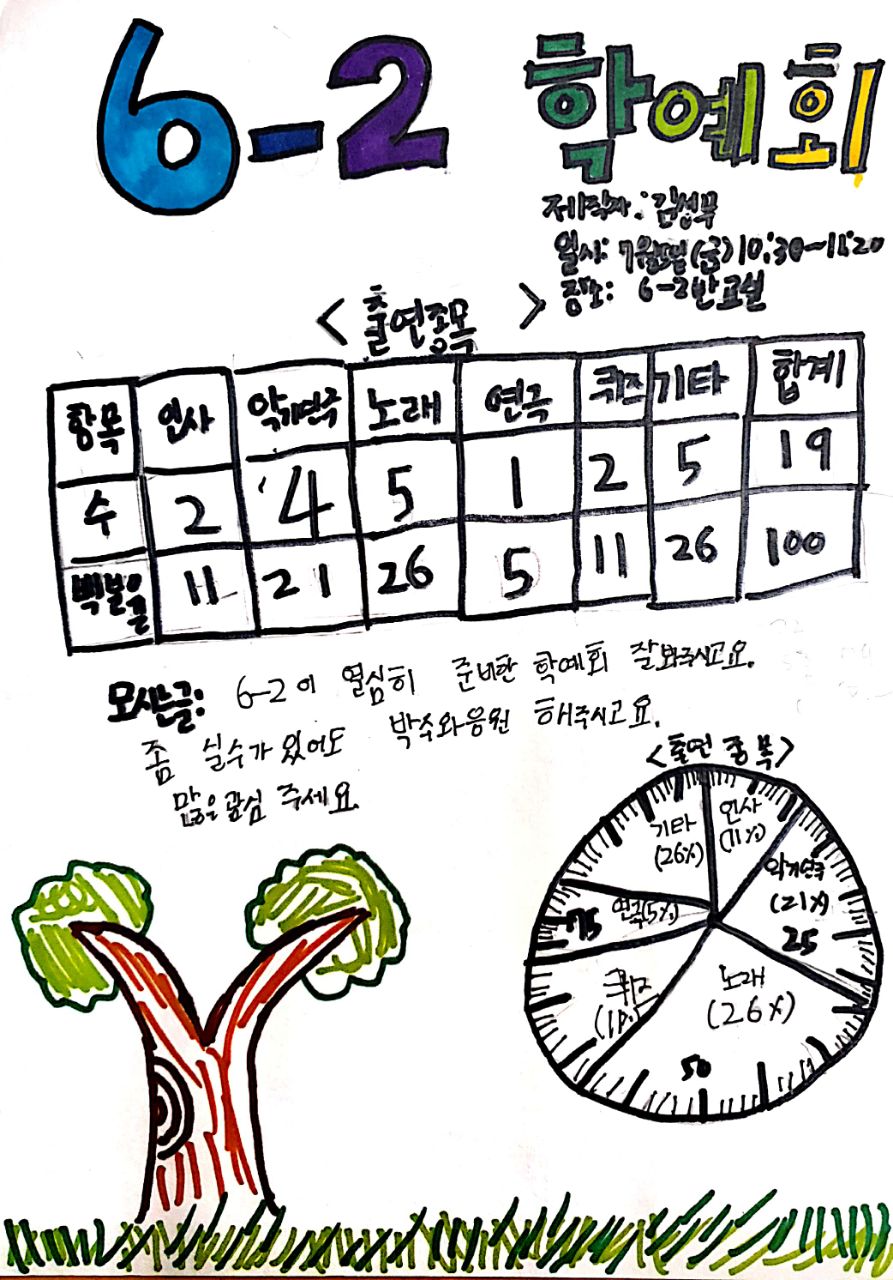 6-2 학예회
제작자: 김성무
일시: 7월 (금) 10:30~11:20
장소: 6-2반 교실
< 출연종목 >
항목 인사 악기연주 노래 연극 퀴즈 기타 합계
수 2 4 5 1 2 5 19
백분율 11 21 26 5 11 26 100
모시는글: 6-2 이 열심히 준비한 학예회 잘봐주시고요.
좀 실수가 있어도 박수와응원 해주시고요.
많은관심 주세요.
<출연 종목>
기타 (26%)
인사 (11%)
악기연주 (21%)
25
노래 (26%)
50
퀴즈
75
연극(5%)